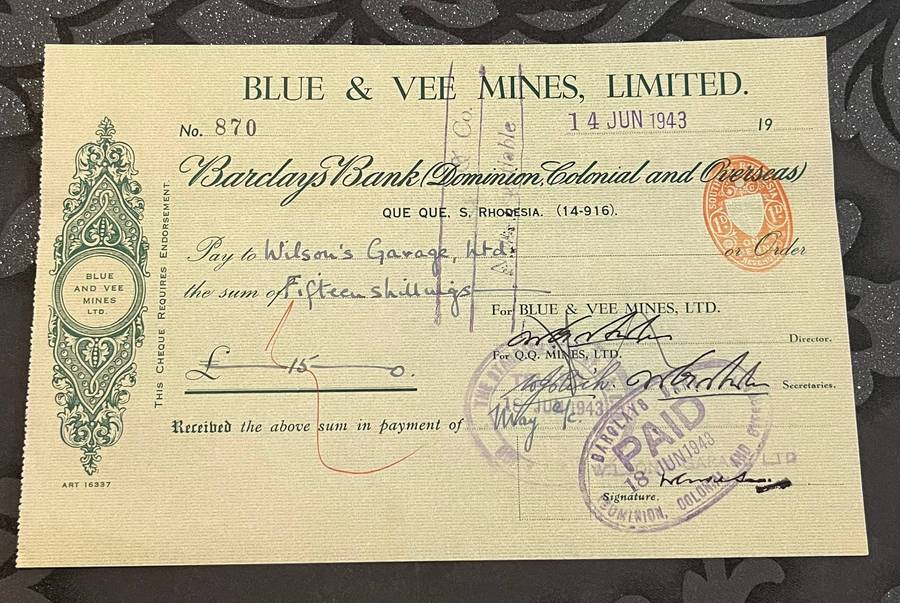 BLUE & VEE MINES, LIMITED.
No. 870
14 JUN 1943 19
Barclays Bank (Dominion, Colonial and Overseas)
QUE QUE, S. RHODESIA. (14-916).
Pay to Wilson's Garage, Ltd. or Order
the sum of Fifteen shillings
For BLUE & VEE MINES, LTD.
Director.
For Q.Q. MINES, LTD.
£ 15 0. Secretaries.
Received the above sum in payment of May a/c.
Signature.
BLUE
AND VEE
MINES
LTD.
THIS CHEQUE REQUIRES ENDORSEMENT.
ART 16337
& Co.
JUN 1943
BARCLAYS
PAID
18 JUN 1943
DOMINION, COLONIAL AND
LTD